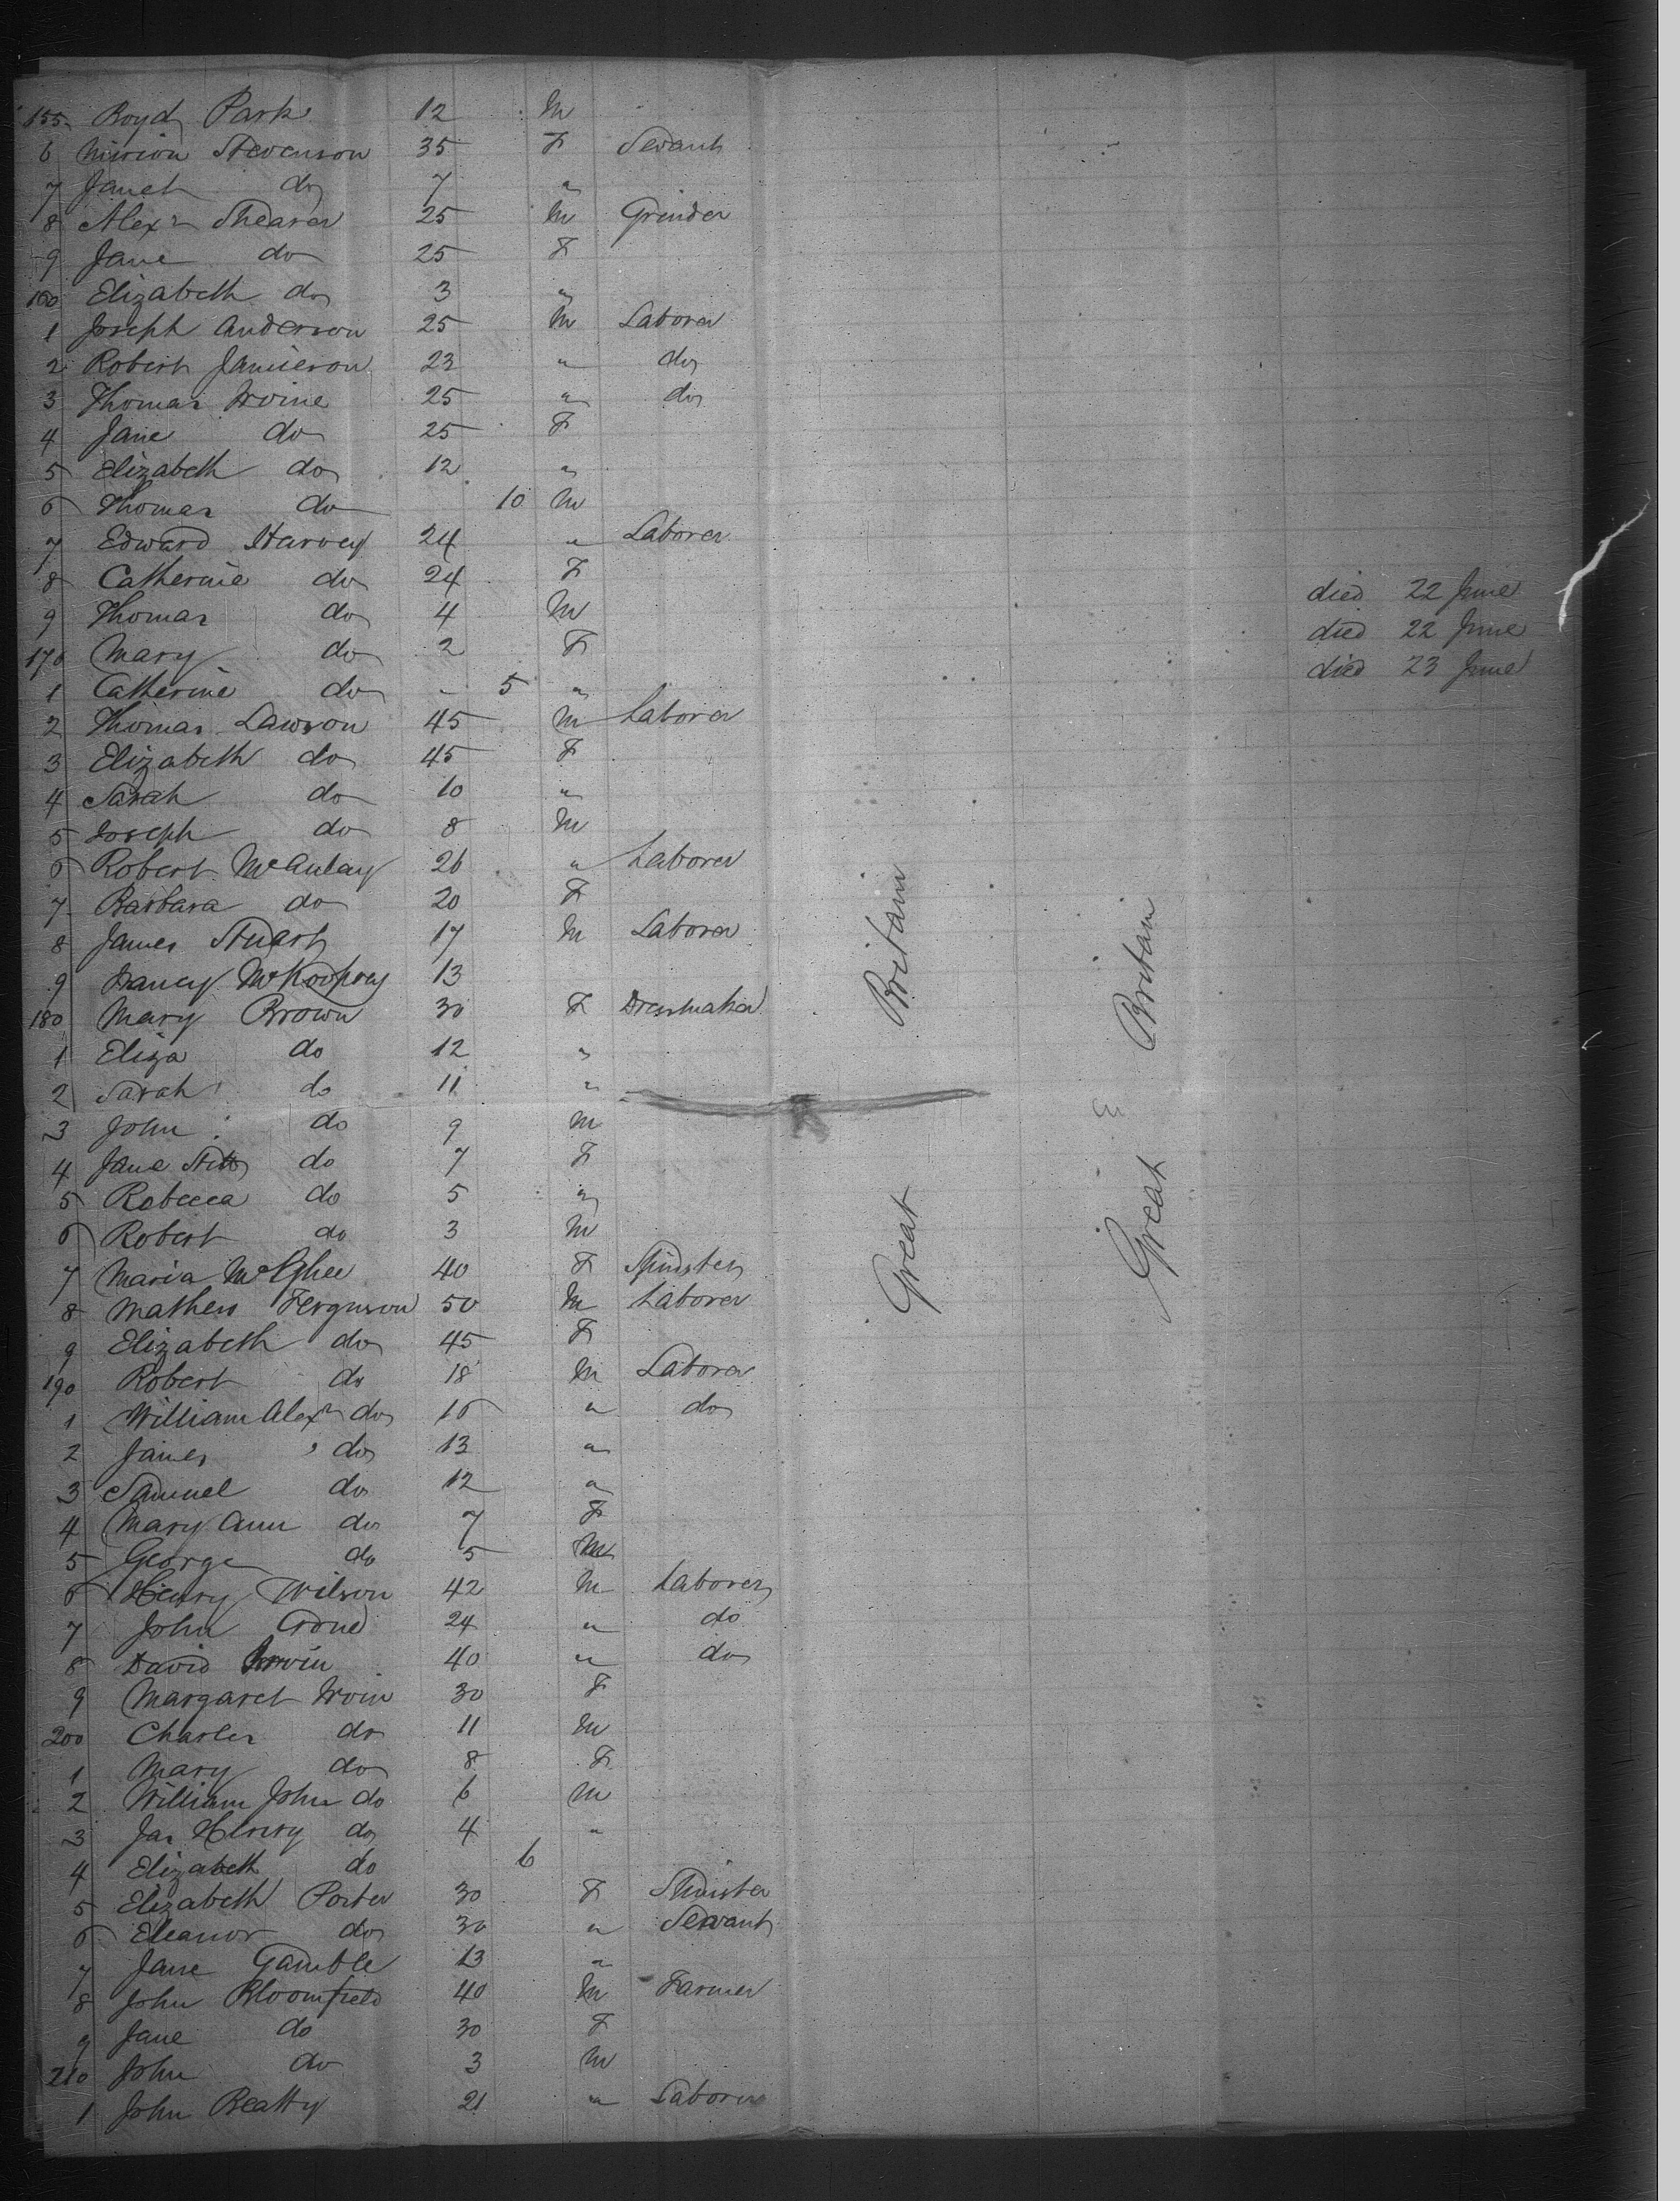 155 Boyd Park 12 M
6 Stevenson 35 F Sevant
7 Janet do 7 "
8 Alexr Shearer 25 M Grinder
9 Jane do 25 F
160 Elizabeth do 3 "
1 Joseph Anderson 25 M Laborer
2 Robert Jamieson 23 " do
3 Thomas Irvine 25 " do
4 Jane do 25 F
5 Elizabeth do 12 "
6 Thomas do 10 M
7 Edward Harvey 24 " Laborer
8 Catherine do 24 F
9 Thomas do 4 M died 22 June
170 Mary do 2 F died 22 June
1 Catherine do - 5 " died 23 June
2 Thomas Lawson 45 M Laborer
3 Elizabeth do 45 F
4 Sarah do 10 "
5 Joseph do 8 M
6 Robert McAulay 26 " Laborer
7 Barbara do 20 F
8 James Stuart 17 M Laborer
9 13
180 Mary Brown 30 F Dressmaker
1 Eliza do 12 "
2 Sarah do 11 "
3 John do 9 M
4 Jane do 7 F
5 Rebecca do 5 "
6 Robert do 3 M
7 Maria McGhee 40 F Spinster
8 Mathew Ferguson 50 M Laborer
9 Elizabeth do 45 F
190 Robert do 18 M Laborer
1 William Alexr do 16 " do
2 James do 13 "
3 Samuel do 12 "
4 Mary Ann do 7 F
5 George do 5 M
6 Henry Wilson 42 M Laborer
7 John 24 " do
8 David Irvin 40 " do
9 Margaret Irvin 30 F
200 Charles do 11 M
1 Mary do 8 F
2 William John do 6 M
3 Jas Henry do 4 "
4 Elizabeth do 6
5 Elizabeth Porter 30 F Spinster
6 Eleanor do 30 " Servant
7 Jane Gamble 13 "
8 John Bloomfield 40 M Farmer
9 Jane do 30 F
210 John do 3 M
1 John Beatty 21 " Laborer
Great Britain
Great Britain